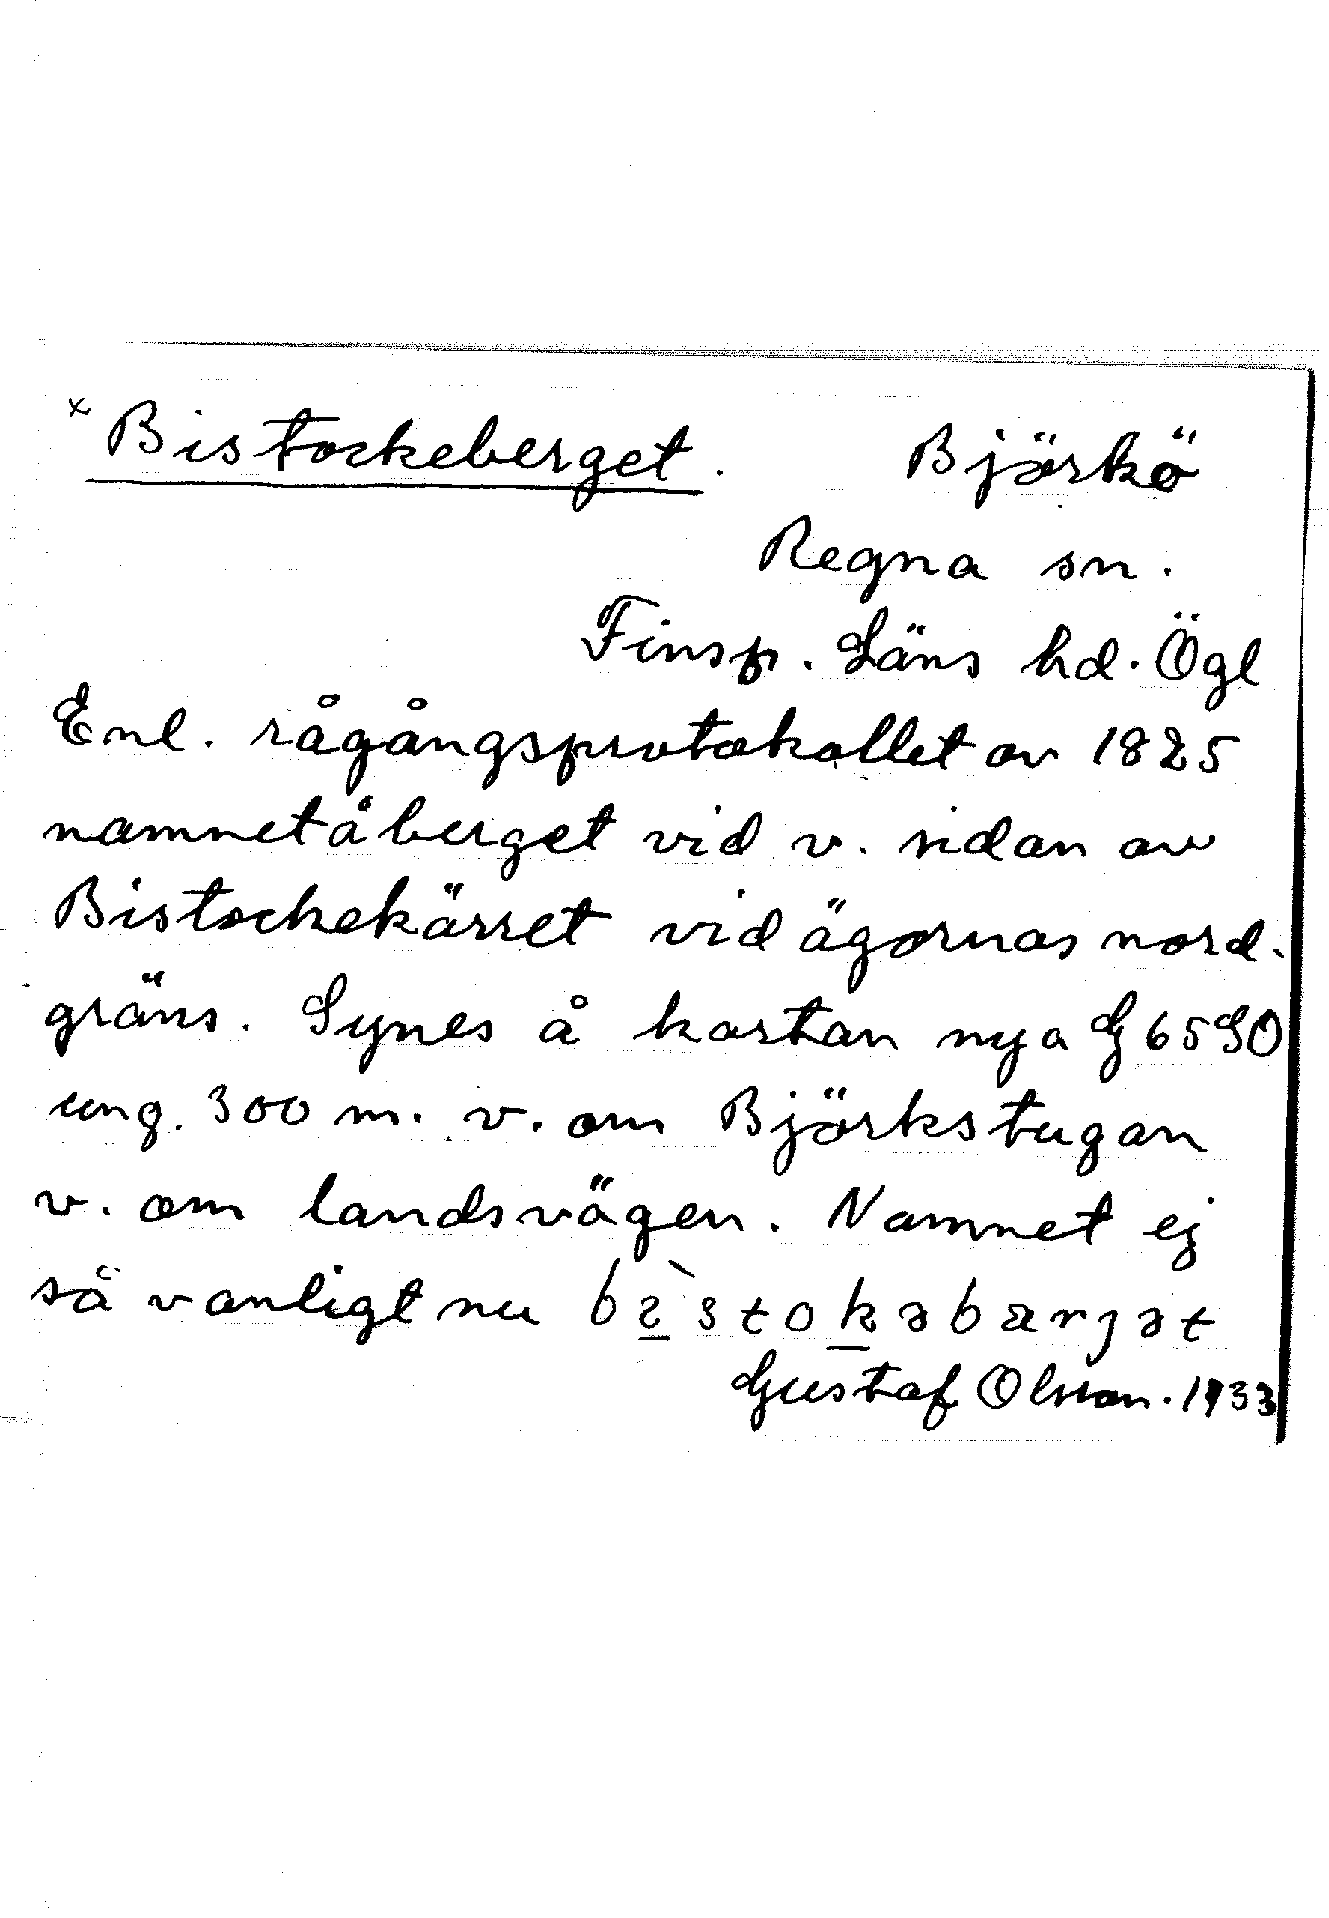 x Bistockeberget. Björkö
Regna sn.
Finsp. Läns hd. Ögl
Enl. rågångsprotokollet av 1825
namnet å berget vid v. sidan av
Bistockekärret vid ägornas nord-
gräns. Synes å kartan nya G 65 SO
ung. 300 m. v. om Björkstugan
v. om landsvägen. Namnet ej
så vanligt nu bìstokəbærjət
Gustaf Olsson. 1933